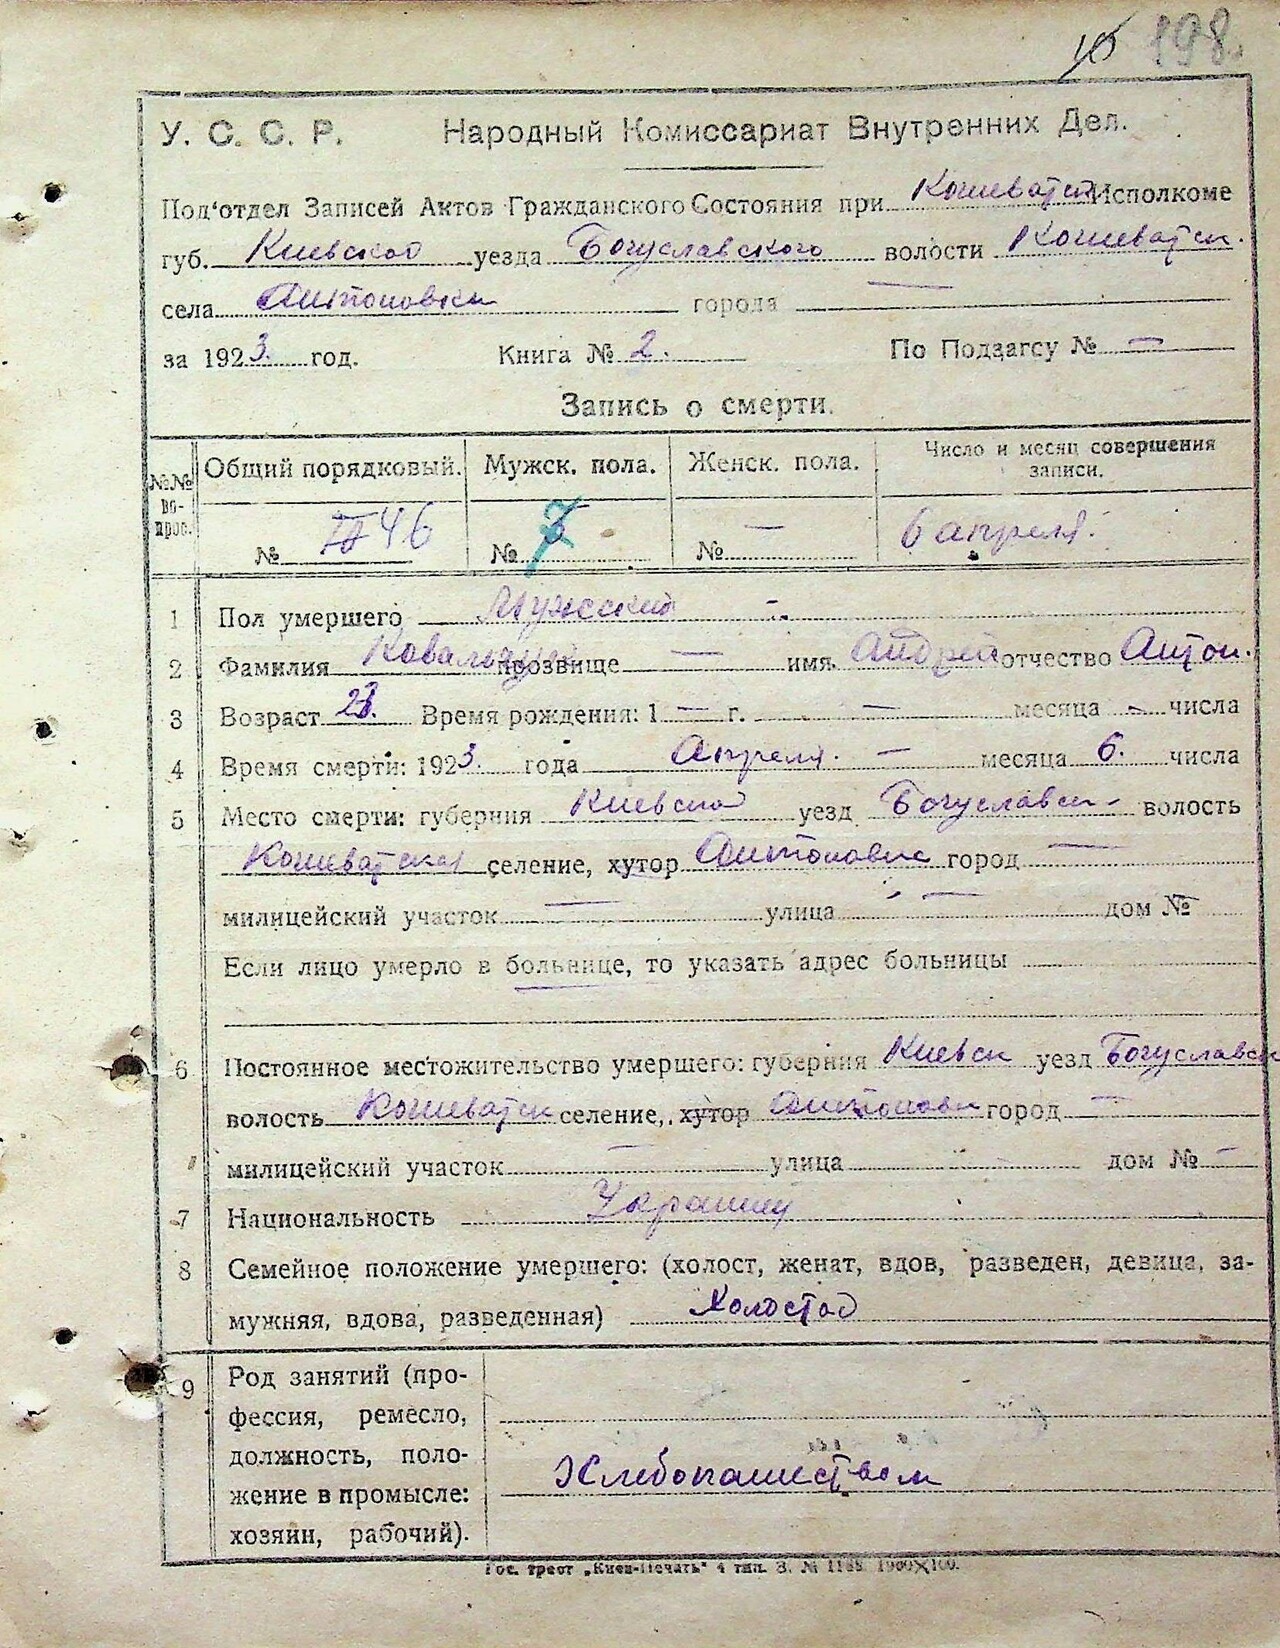 198.
У. С. С. Р. Народный Комиссариат Внутренних Дел.
Под'отдел Записей Актов Гражданского Состояния при Кошеватск Исполкоме
губ. Киевской уезда Богуславского волости Кошеватск.
села Антоновки города —
за 1923. год. Книга № 2. По Подзагсу № —
Запись о смерти.
№№ вопрос. Общий порядковый. Мужск. пола. Женск. пола. Число и месяц совершения записи.
№ 46 № 7 № — 6 апреля.
1 Пол умершего Мужской —
2 Фамилия Ковальчук прозвище — имя Андрей отчество Антон.
3 Возраст Время рождения: 1 — г. — месяца — числа
4 Время смерти: 1923. года Апреля. — месяца 6. числа
5 Место смерти: губерния Киевской уезд Богуславск- волость
Кошеватская селение, хутор Антоновке город —
милицейский участок — улица — дом № —
Если лицо умерло в больнице, то указать адрес больницы
6 Постоянное местожительство умершего: губерния Киевск уезд Богуславск
волость Кошеватск селение, хутор Антоновк город —
милицейский участок — улица — дом № —
7 Национальность Украинец
8 Семейное положение умершего: (холост, женат, вдов, разведен, девица, за-
мужняя, вдова, разведенная) Холостой
9 Род занятий (про-
фессия, ремесло,
должность, поло-
жение в промысле:
хозяин, рабочий).
Хлебопашеством
Гос. трест „Киев-Печать" 4 тип. З. № 1188. 1900×100.